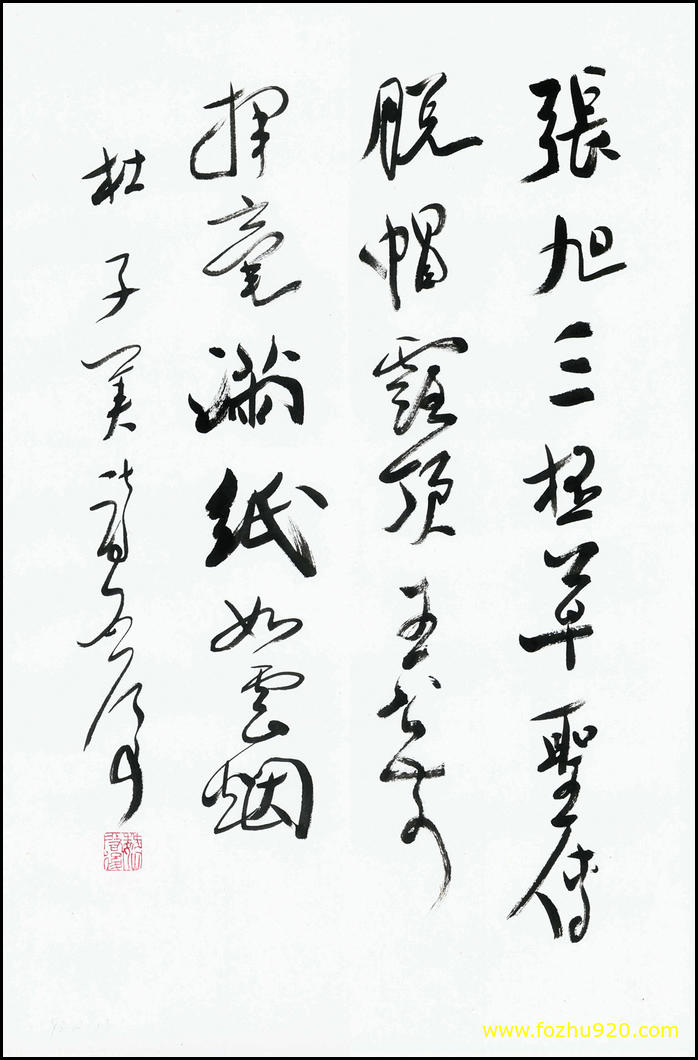 張旭三桮草聖傳
脱帽露頂王公前
揮毫滿紙如雲烟
杜子美詩
www.fozhu920.com